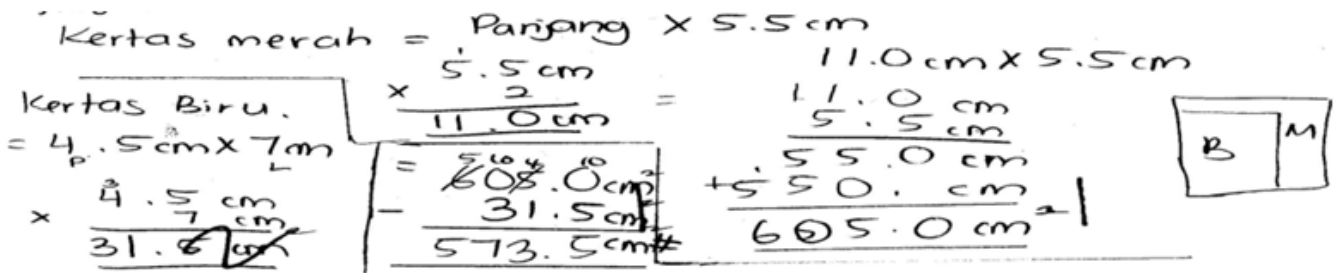 Kertas merah = Panjang × 5.5 cm
5.5 cm
× 2
11.0 cm
= 11.0 cm × 5.5 cm
11.0 cm
5.5 cm
55.0 cm
+550. cm
605.0 cm²
Kertas Biru.
= 4.5 cm × 7 m
P L
4.5 cm
× 7 cm
31.5 cm
= 605.0 cm²
- 31.5 cm²
573.5 cm²
B M